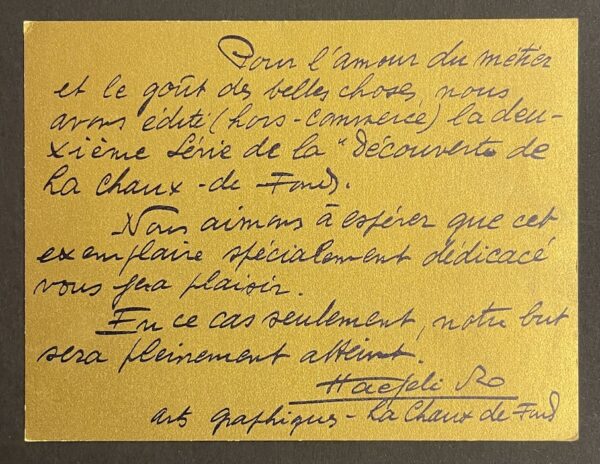 Pour l'amour du métier
et le goût des belles choses, nous
avons édité (hors-commerce) la deu-
xième série de la "Découverte de
La Chaux-de-Fonds.
Nous aimons à espérer que cet
exemplaire spécialement dédicacé
vous fera plaisir.
En ce cas seulement, notre but
sera pleinement atteint.
Haefeli
arts graphiques - La Chaux de Fond